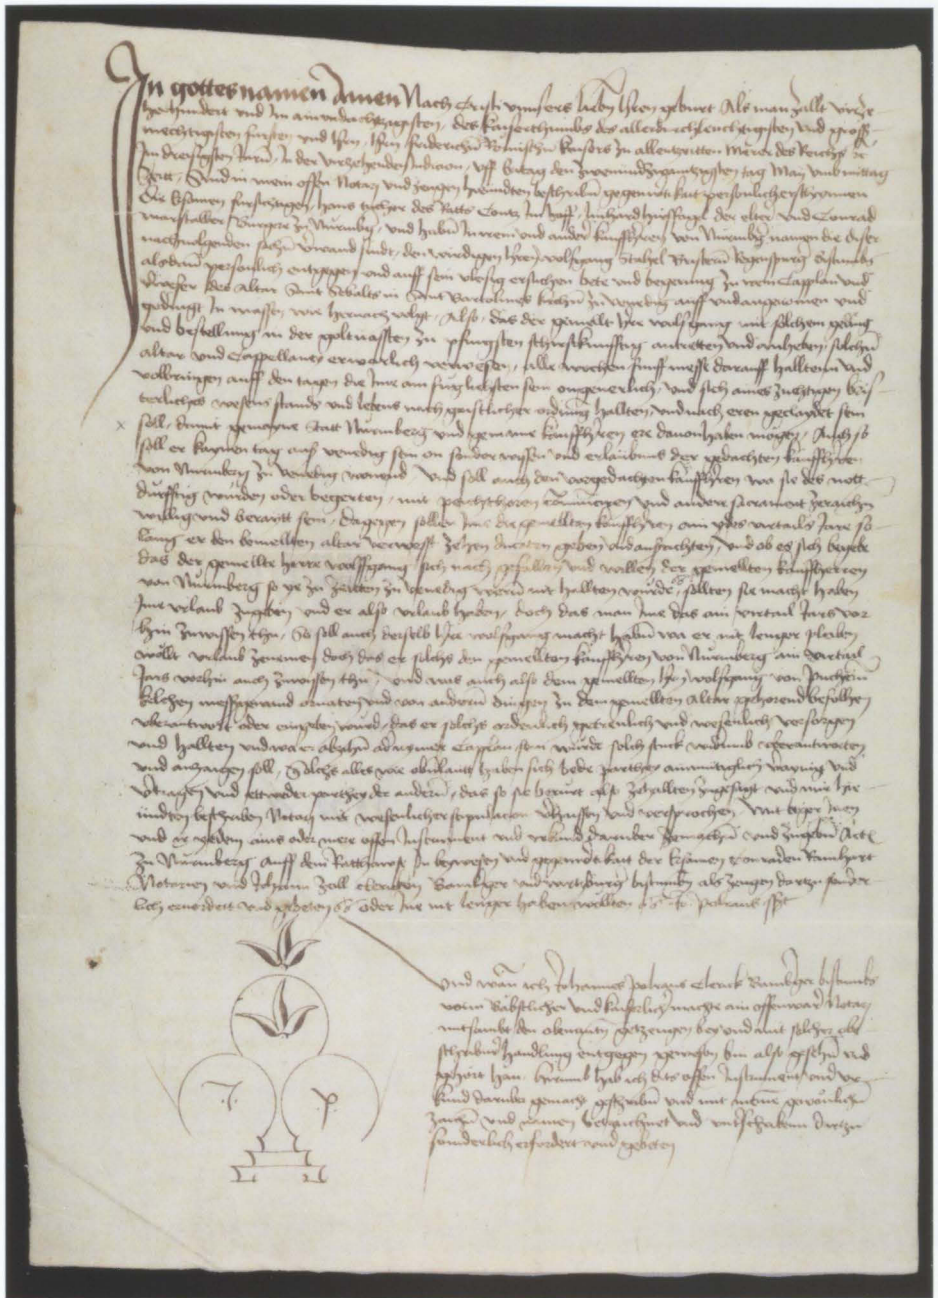 In gottes namen Amen Nach Cristi unnsers lieben Hren geburt Als man zallt vierze
hehundert und Im ainundachtzigisten, des kaiserthumbs des allerdurchleuchtigisten und groß
mechtigisten fursten und Hrn, Hrn friderichn Romischn kaisers zu allentzeitten merer des Reichs
Im dreisigsten Jarn, In der vierzehenden Indicion, uff tag den zwenundzwaintzigsten tag May umb mittag
Zeitt, Sind in mein offen Notary und zeugen hieundten beschribn gegenwurtikait personlich erschynnen
Die Ersamen fursichtigen, Hanns tucher des Ratts Contz Imhoff, Linhard Hirsfogel der elter und Conrad
marstaller Burgere zu Nurmberg, und habn In irem und ander kauffhren von Nurmberg namen die diser
nachuolgenden sachn verwand sindt, den wirdigen Hren wolfgang Stahel Priestern Regenspurger bistumbs
alsdann personlich entgegen und auff sein vleissig ersuchen bete und begerung zu irem Capplan und
verweser des Altar Sant Sebalts in Sant Bartolmes kirchn zu Venedig auff undangenommen und
gedingt In massen, wie hernach volgt, Also, das der gemellt Hre wolfgang mit solchem geding
und bestellung in der goltuassten zu pfingsten schirstkunfftig antretten und anheben, solchen
altar und Cappellaney erwerlich verwesen, alle wochen funff messe darauff halltenn und
volbringen auff den tagen die Ime am fuglichsten sein ongeuerlich, und sich aines zuchtigen bries
terliches wesens stands und lebens nach gaistlicher ordnung hallten, und nach eren geclaydet sein
soll, damit gemayne Statt Nurmberg und gemaine kauffhren ere dauon haben mogen, Auch so
soll er kaynen tag auß Venedig sein on sonder wissen und erlaubnus der gedachten kauffhren
von Nurmberg zu Venedig wonend Und soll auch den vorgedachten kauffhren wo sie des nott
durfftig wurden oder begerten, mit peichthoren und andere sacrament zeraichn
willig und beraitt sein, dagegen sollen Ime die gemellten kauffhren ain ydes virtails Jare so
lang er den bemellten altar verwesst zehen ducaten geben und ausrichten, und ob es sich begebe
das der gemellte Herre wolffgang sich nach gefallen und willen der gemellten kauffherren
von Nurmberg so ye zu zeitten zu Venedig wern nit hallten wurde, sollten sie macht haben
Ime urlaub zugeben und er also urlaub haben, doch das man Ime das ain virtail Jars vor
hin zuwissen thu, So soll auch derselb Hre wolfgang macht habn wa er nit lenger pleiben
wollt urlaub zenemen doch das er solchs den gemellten kauffhren von Nurmberg ain virtail
Jars vorhin auch zuwissen thu, und was auch also dem gemellten Hrn wolfgang von puchern
kelchen messgewand ornaten und von anderen dingen zu dem gemellten Altar gehorend befolhen
uberantwort oder eingeben wurd, das er solchs ordenlich getreulich und wesenlich versorgen
und hallten und wa er abzihn oder nymer Capplan sein wurde solch stuck widrumb uberantworten
und anzaigen soll, Solchs alles wie obenlautt haben sich bede partheyen ainmuttigklich verainig und
vertragen und ettweder parthey der andern, das so sie berurt also zehallten zugesagt und mir hie
undten beschriben Notary mit wesenlicher stipulacion verhaissen und versprochen, mit beger Inen
und yr yeden ains oder mere offen Instrument und urkund daruber zemachen und zugeben Act
zu Nurmberg auff dem Ratthawse In beywesen und gegenwurtikait der Ersamen Conraden Rambart
Notarien und Johann Zoll clericken Bamberger und wirtzburger bistumbn als zeugen dartzu sonder
lich eruordert und gebeten oder Ine nit lenger haben wollten
Und wann ich Johannes Clerick Bamberger bistumbs
vonn Bäbstlicher und kaiserlicher machte ain offenwar Notary
mitsambt den obengenannten getzeugen bey und mit solcher obe
schribner handlung entgegen gewesen bin also gesehn und
gehort han, hierumb hab ich dits offen Instrument und ur
kund daruber gemacht geschribn und mit meinem gewonlichn
zaichn und namen bezaichnet und underschriben dartzu
sunderlich erfordert und gebeten
J. P.